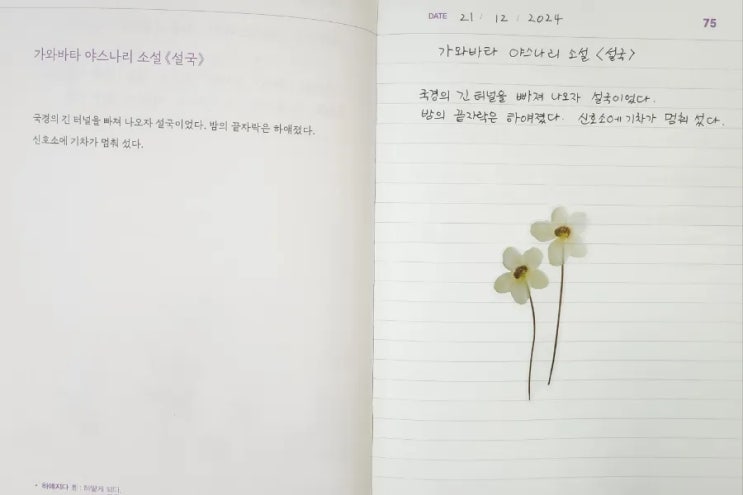 가와바타 야스나리 소설 《설국》
국경의 긴 터널을 빠져 나오자 설국이었다. 밤의 끝자락은 하얘졌다.
신호소에 기차가 멈춰 섰다.
• 하얘지다 동 : 하얗게 되다.
DATE 21 / 12 / 2024
75
가와바타 야스나리 소설 <설국>
국경의 긴 터널을 빠져 나오자 설국이었다.
밤의 끝자락은 하얘졌다. 신호소에 기차가 멈춰 섰다.